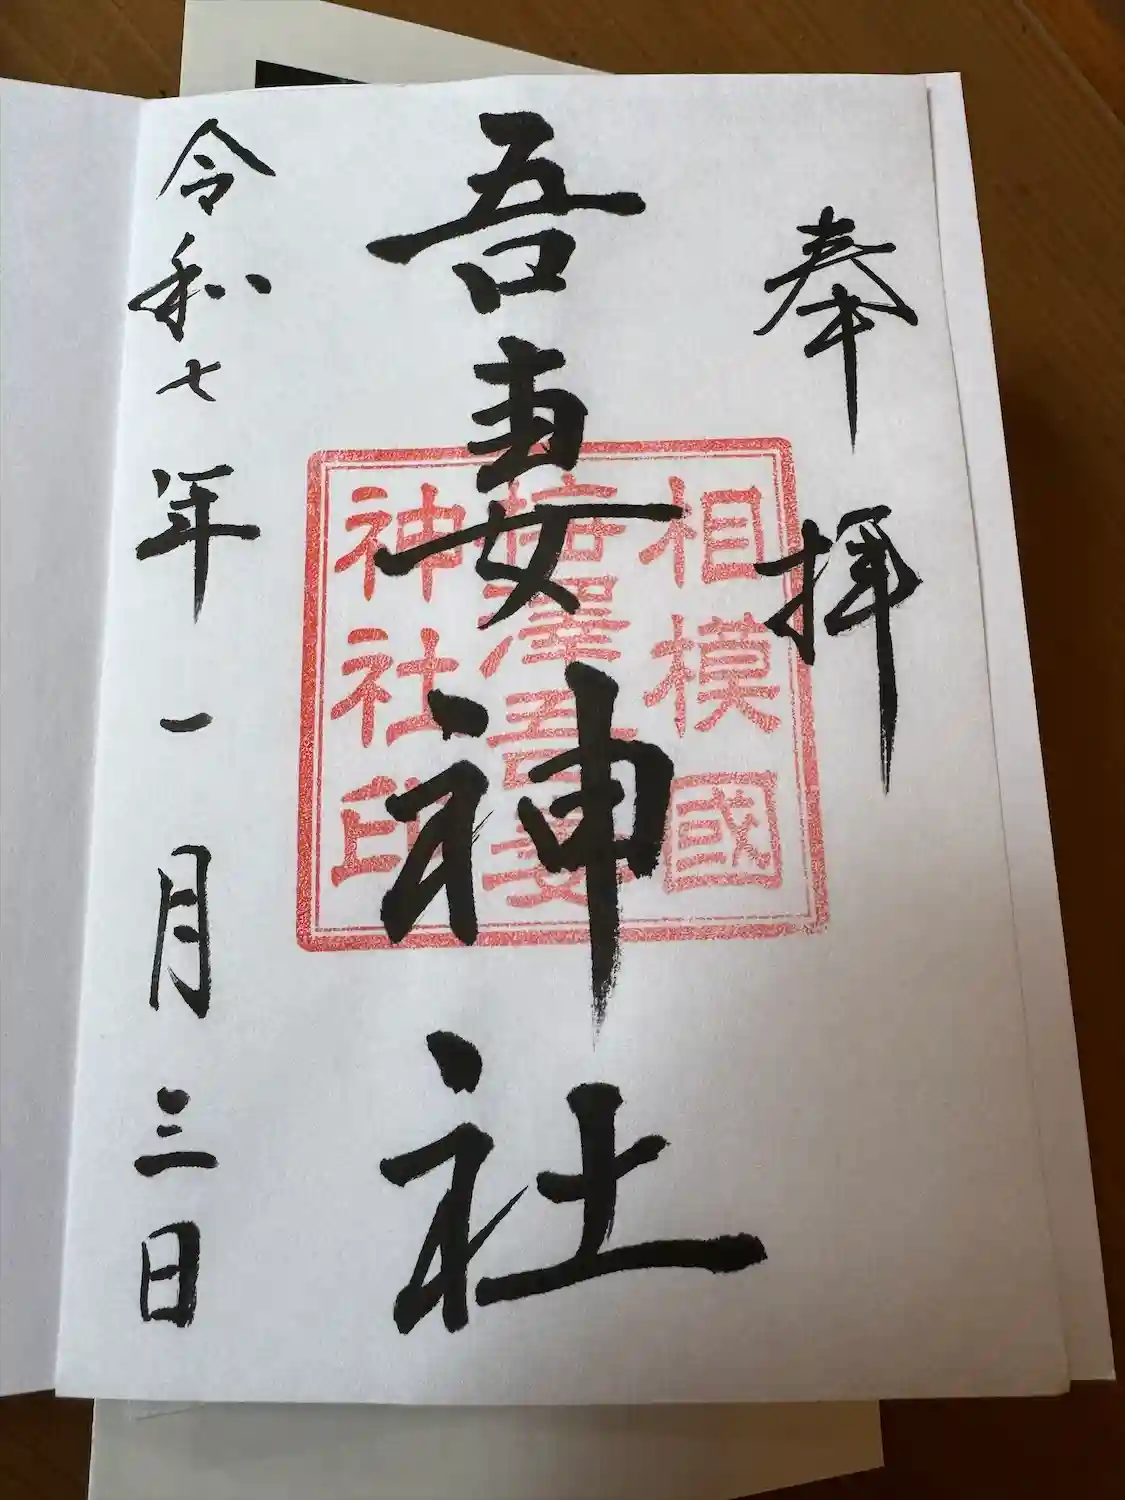 奉拝
吾妻神社
相模國
梅澤吾妻
神社印
令和七年一月三日